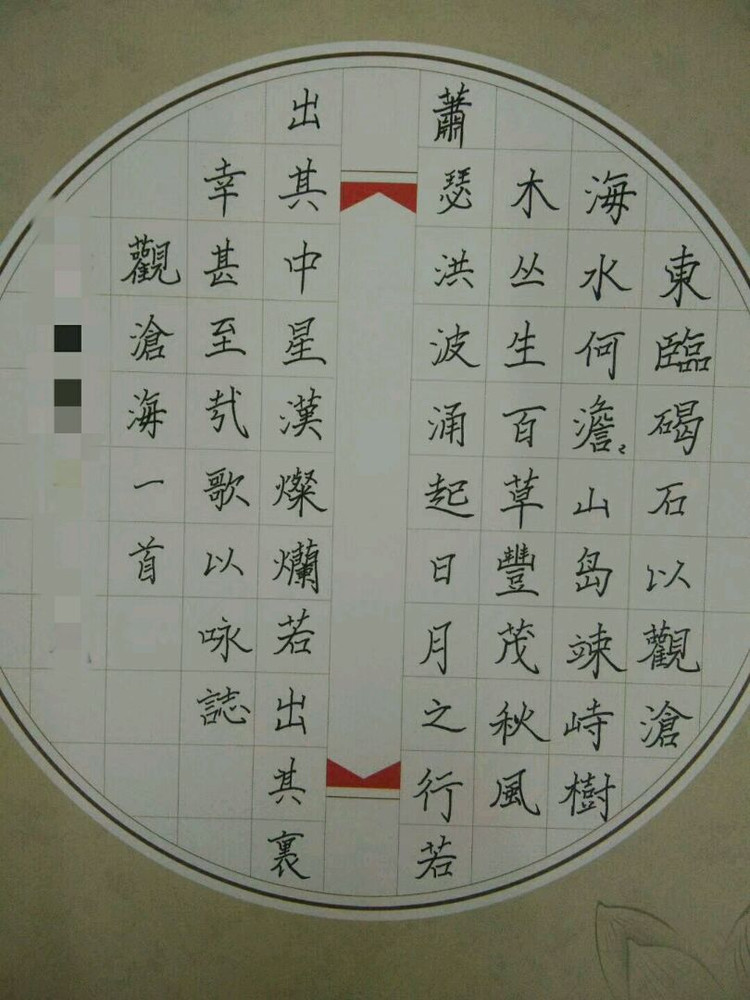 東臨碣石以觀滄
海水何澹〻山島竦峙樹
木丛生百草豐茂秋風
蕭瑟洪波涌起日月之行若
出其中星漢燦爛若出其裏
幸甚至哉歌以咏誌
觀滄海一首